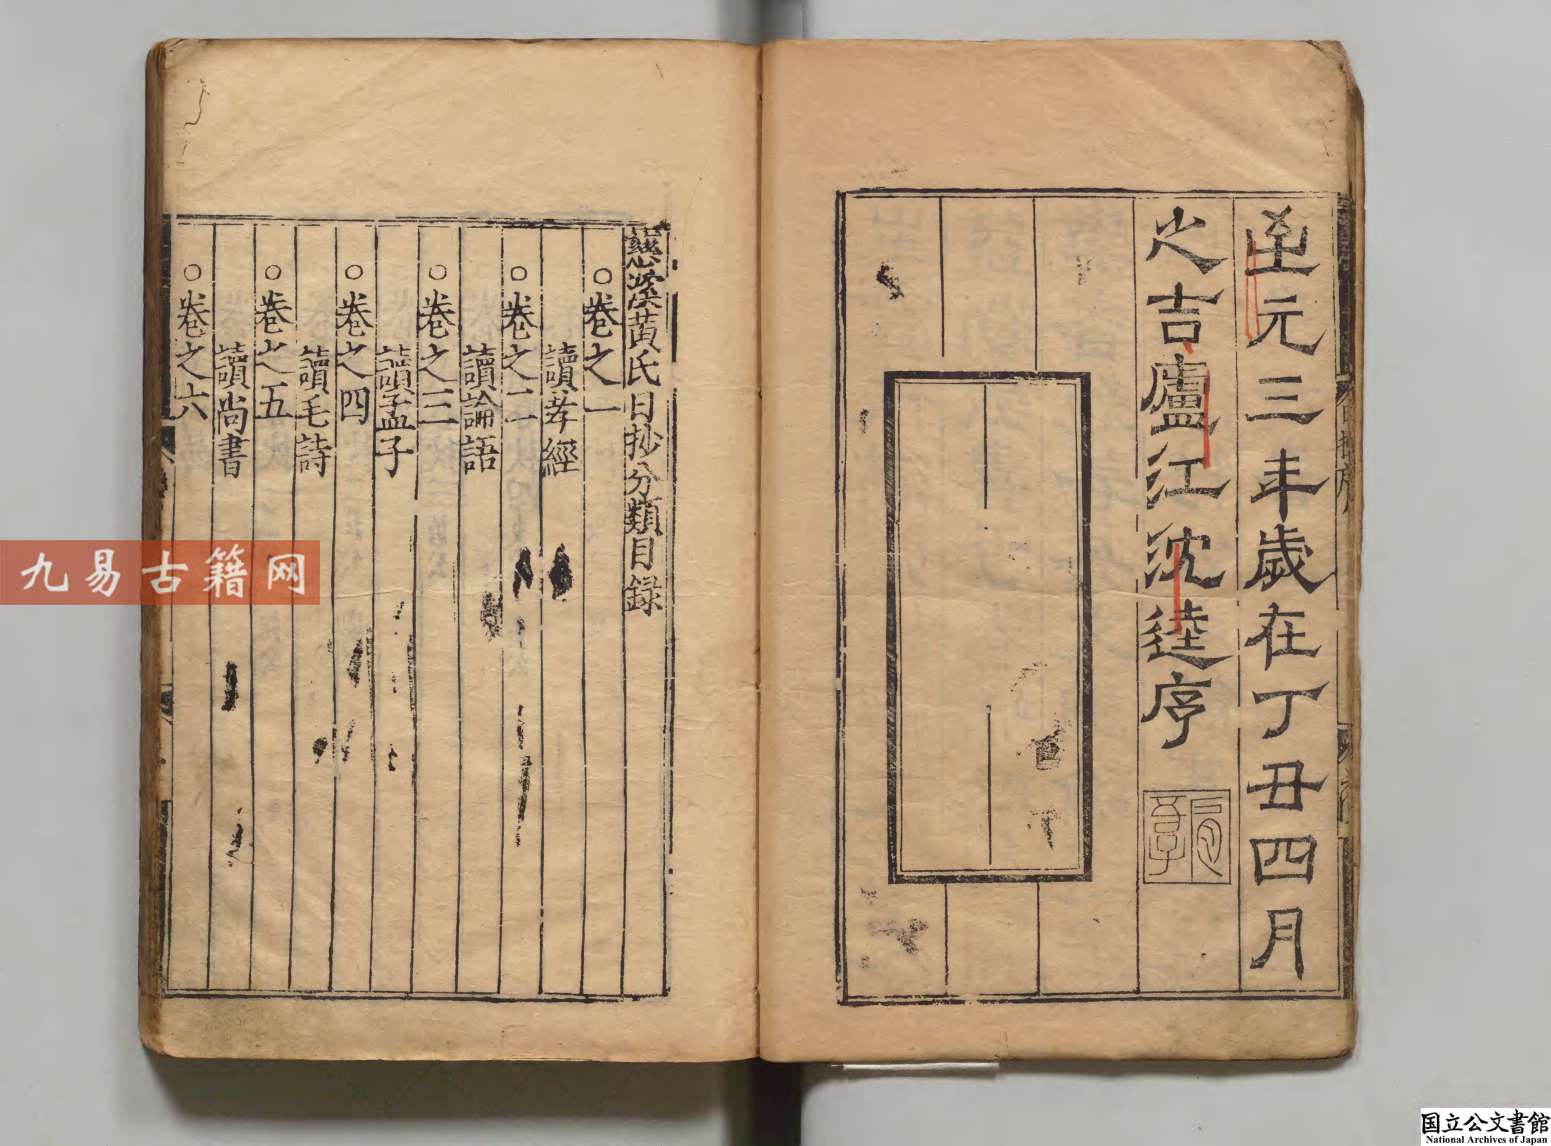 至元三年歲在丁丑四月
之吉廬江沈逵序
慈溪黃氏日抄分類目録
○卷之一
讀孝經
○卷之二
讀論語
○卷之三
讀孟子
○卷之四
讀毛詩
○卷之五
讀尚書
○卷之六
九易古籍网
国立公文書館
National Archives of Japan